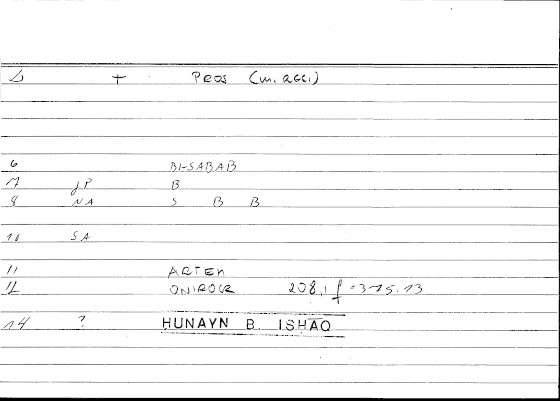 + PROS (m. acc.)
6 BI-SABAB
7 JP B
8 NA S B B
10 SA
11 ARTEM
12 ONIROCR 208,1 f = 375.13
14 ? HUNAYN B. ISHAQ